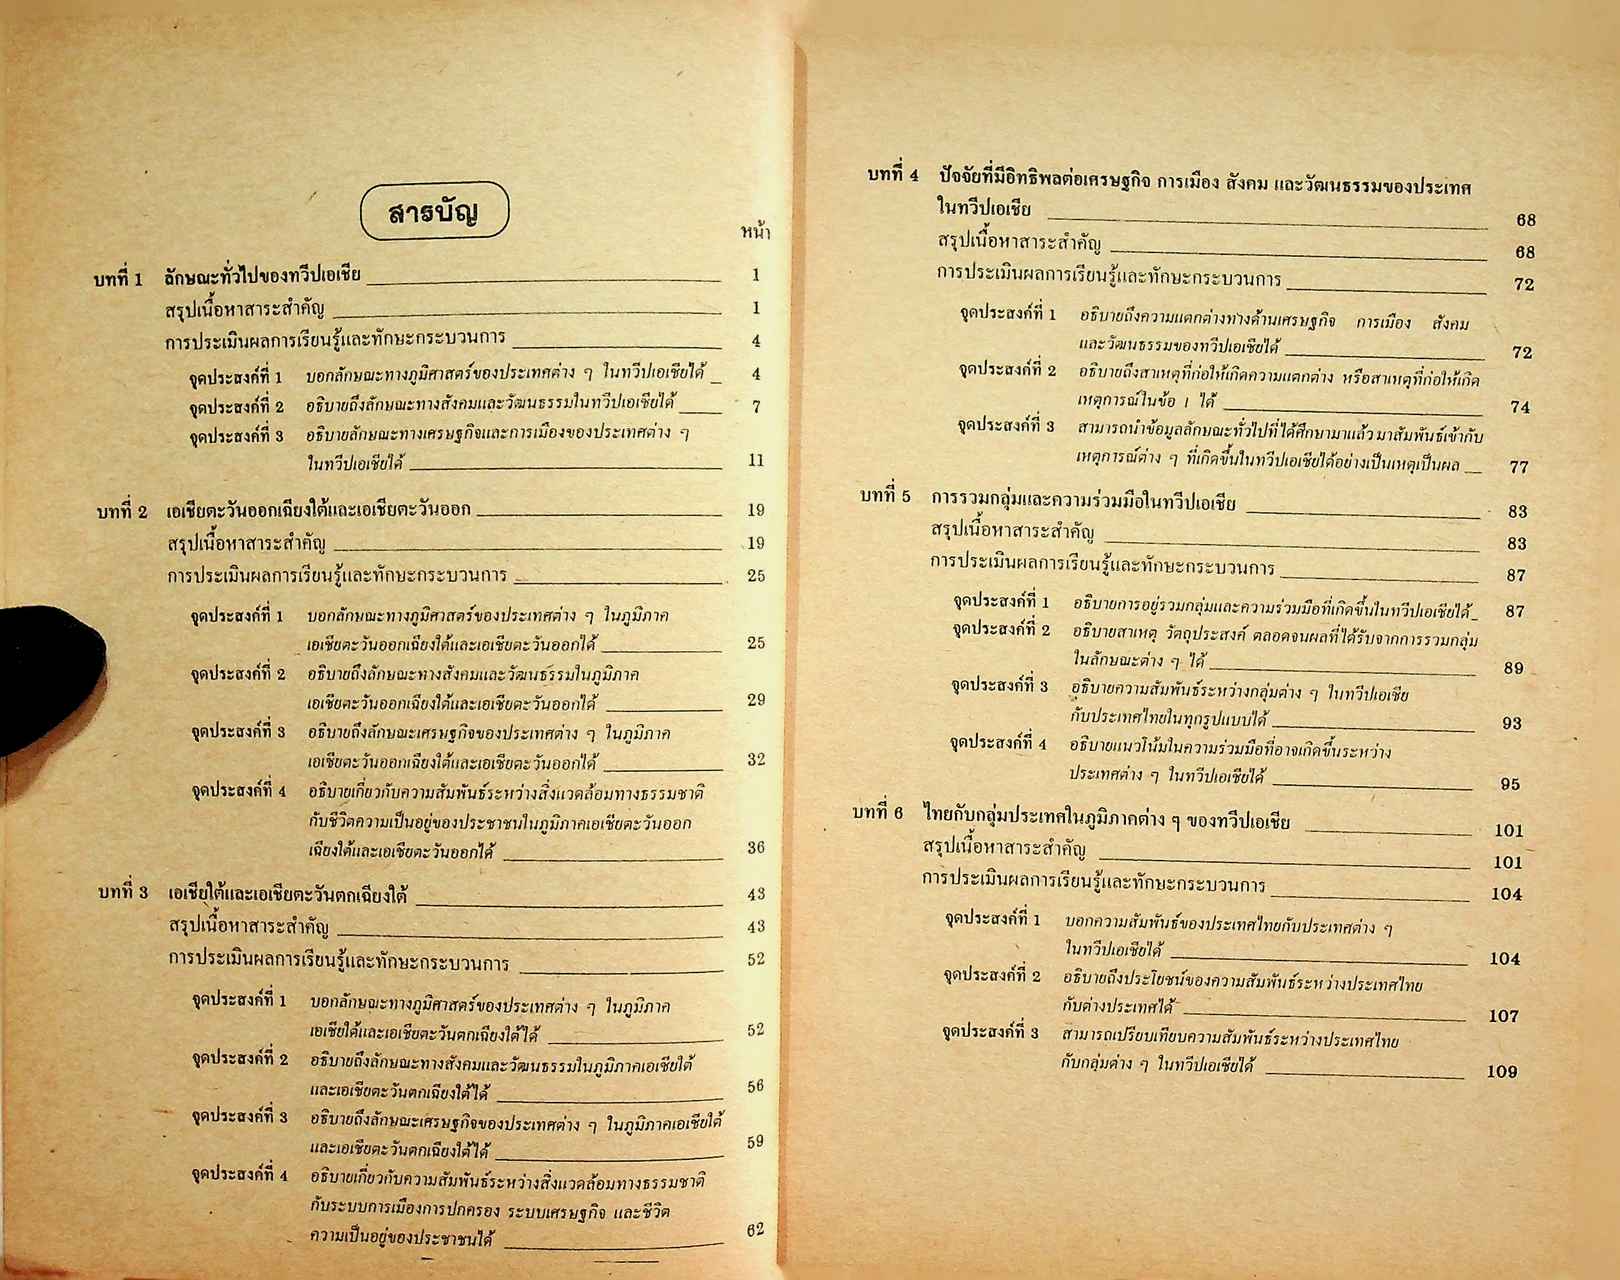 สารบัญ
หน้า
บทที่ 1 ลักษณะทั่วไปของทวีปเอเชีย 1
สรุปเนื้อหาสาระสำคัญ 1
การประเมินผลการเรียนรู้และทักษะกระบวนการ 4
จุดประสงค์ที่ 1 บอกลักษณะทางภูมิศาสตร์ของประเทศต่าง ๆ ในทวีปเอเชียได้ 4
จุดประสงค์ที่ 2 อธิบายถึงลักษณะทางสังคมและวัฒนธรรมในทวีปเอเชียได้ 7
จุดประสงค์ที่ 3 อธิบายลักษณะทางเศรษฐกิจและการเมืองของประเทศต่าง ๆ
ในทวีปเอเชียได้ 11
บทที่ 2 เอเชียตะวันออกเฉียงใต้และเอเชียตะวันออก 19
สรุปเนื้อหาสาระสำคัญ 19
การประเมินผลการเรียนรู้และทักษะกระบวนการ 25
จุดประสงค์ที่ 1 บอกลักษณะทางภูมิศาสตร์ของประเทศต่าง ๆ ในภูมิภาค
เอเชียตะวันออกเฉียงใต้และเอเชียตะวันออกได้ 25
จุดประสงค์ที่ 2 อธิบายถึงลักษณะทางสังคมและวัฒนธรรมในภูมิภาค
เอเชียตะวันออกเฉียงใต้และเอเชียตะวันออกได้ 29
จุดประสงค์ที่ 3 อธิบายถึงลักษณะเศรษฐกิจของประเทศต่าง ๆ ในภูมิภาค
เอเชียตะวันออกเฉียงใต้และเอเชียตะวันออกได้ 32
จุดประสงค์ที่ 4 อธิบายเกี่ยวกับความสัมพันธ์ระหว่างสิ่งแวดล้อมทางธรรมชาติ
กับชีวิตความเป็นอยู่ของประชาชนในภูมิภาคเอเชียตะวันออก
เฉียงใต้และเอเชียตะวันออกได้ 36
บทที่ 3 เอเชียใต้และเอเชียตะวันตกเฉียงใต้ 43
สรุปเนื้อหาสาระสำคัญ 43
การประเมินผลการเรียนรู้และทักษะกระบวนการ 52
จุดประสงค์ที่ 1 บอกลักษณะทางภูมิศาสตร์ของประเทศต่าง ๆ ในภูมิภาค
เอเชียใต้และเอเชียตะวันตกเฉียงใต้ได้ 52
จุดประสงค์ที่ 2 อธิบายถึงลักษณะทางสังคมและวัฒนธรรมในภูมิภาคเอเชียใต้
และเอเชียตะวันตกเฉียงใต้ได้ 56
จุดประสงค์ที่ 3 อธิบายถึงลักษณะเศรษฐกิจของประเทศต่าง ๆ ในภูมิภาคเอเชียใต้
และเอเชียตะวันตกเฉียงใต้ได้ 59
จุดประสงค์ที่ 4 อธิบายเกี่ยวกับความสัมพันธ์ระหว่างสิ่งแวดล้อมทางธรรมชาติ
กับระบบการเมืองการปกครอง ระบบเศรษฐกิจ และชีวิต
ความเป็นอยู่ของประชาชนได้ 62
บทที่ 4 ปัจจัยที่มีอิทธิพลต่อเศรษฐกิจ การเมือง สังคม และวัฒนธรรมของประเทศ
ในทวีปเอเชีย 68
สรุปเนื้อหาสาระสำคัญ 68
การประเมินผลการเรียนรู้และทักษะกระบวนการ 72
จุดประสงค์ที่ 1 อธิบายถึงความแตกต่างทางด้านเศรษฐกิจ การเมือง สังคม
และวัฒนธรรมของทวีปเอเชียได้ 72
จุดประสงค์ที่ 2 อธิบายถึงสาเหตุที่ก่อให้เกิดความแตกต่าง หรือสาเหตุที่ก่อให้เกิด
เหตุการณ์ในข้อ 1 ได้ 74
จุดประสงค์ที่ 3 สามารถนำข้อมูลลักษณะทั่วไปที่ได้ศึกษามาแล้วมาสัมพันธ์เข้ากับ
เหตุการณ์ต่าง ๆ ที่เกิดขึ้นในทวีปเอเชียได้อย่างเป็นเหตุเป็นผล 77
บทที่ 5 การรวมกลุ่มและความร่วมมือในทวีปเอเชีย 83
สรุปเนื้อหาสาระสำคัญ 83
การประเมินผลการเรียนรู้และทักษะกระบวนการ 87
จุดประสงค์ที่ 1 อธิบายการอยู่รวมกลุ่มและความร่วมมือที่เกิดขึ้นในทวีปเอเชียได้ 87
จุดประสงค์ที่ 2 อธิบายสาเหตุ วัตถุประสงค์ ตลอดจนผลที่ได้รับจากการรวมกลุ่ม
ในลักษณะต่าง ๆ ได้ 89
จุดประสงค์ที่ 3 อธิบายความสัมพันธ์ระหว่างกลุ่มต่าง ๆ ในทวีปเอเชีย
กับประเทศไทยในทุกรูปแบบได้ 93
จุดประสงค์ที่ 4 อธิบายแนวโน้มในความร่วมมือที่อาจเกิดขึ้นระหว่าง
ประเทศต่าง ๆ ในทวีปเอเชียได้ 95
บทที่ 6 ไทยกับกลุ่มประเทศในภูมิภาคต่าง ๆ ของทวีปเอเชีย 101
สรุปเนื้อหาสาระสำคัญ 101
การประเมินผลการเรียนรู้และทักษะกระบวนการ 104
จุดประสงค์ที่ 1 บอกความสัมพันธ์ของประเทศไทยกับประเทศต่าง ๆ
ในทวีปเอเชียได้ 104
จุดประสงค์ที่ 2 อธิบายถึงประโยชน์ของความสัมพันธ์ระหว่างประเทศไทย
กับต่างประเทศได้ 107
จุดประสงค์ที่ 3 สามารถเปรียบเทียบความสัมพันธ์ระหว่างประเทศไทย
กับกลุ่มต่าง ๆ ในทวีปเอเชียได้ 109